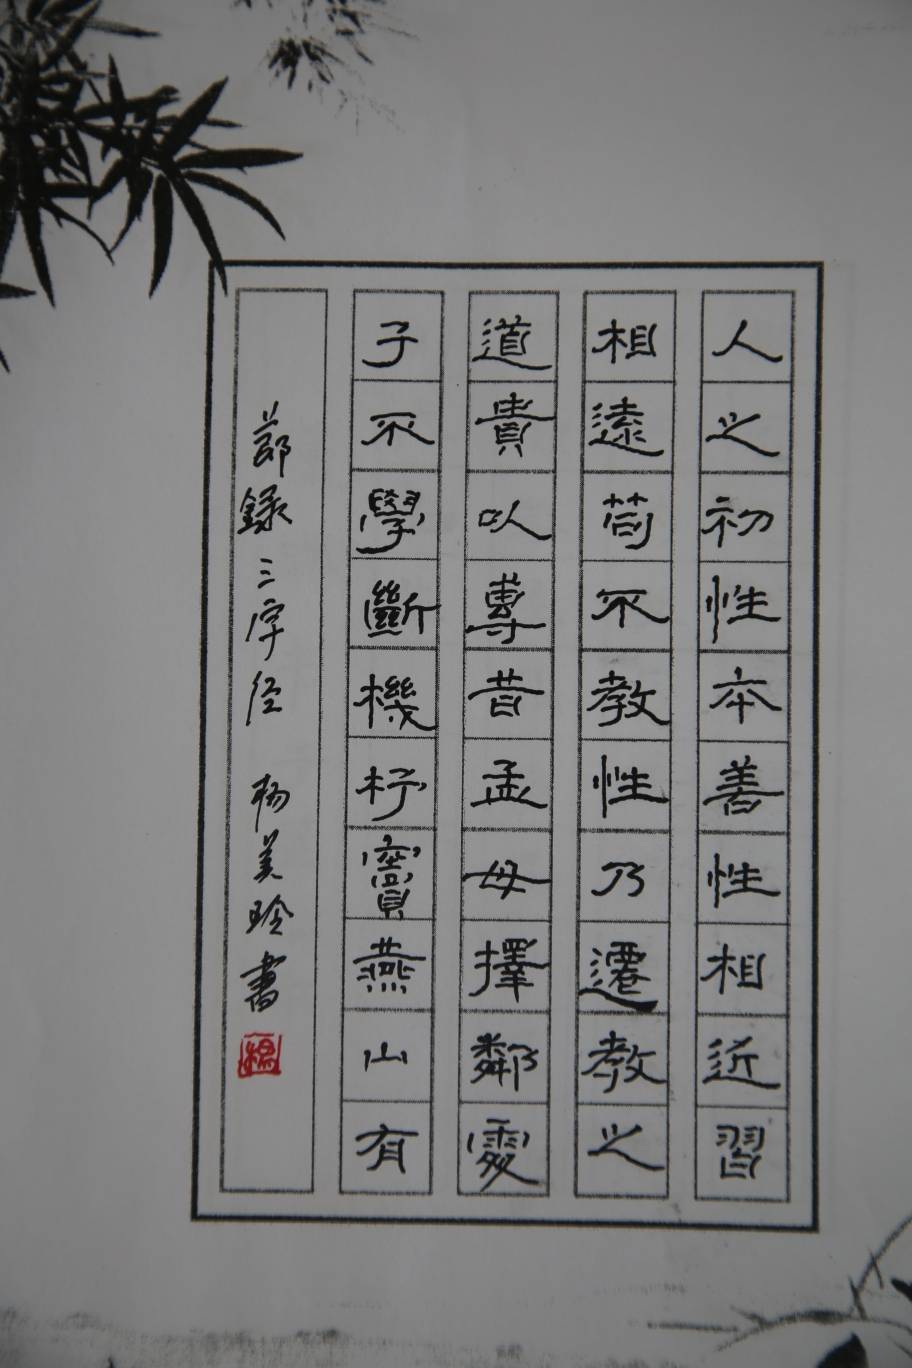 人之初性本善性相近習
相遠苟不教性乃遷教之
道貴以專昔孟母擇鄰處
子不學斷機杼竇燕山有
節録三字経 杨美玲書